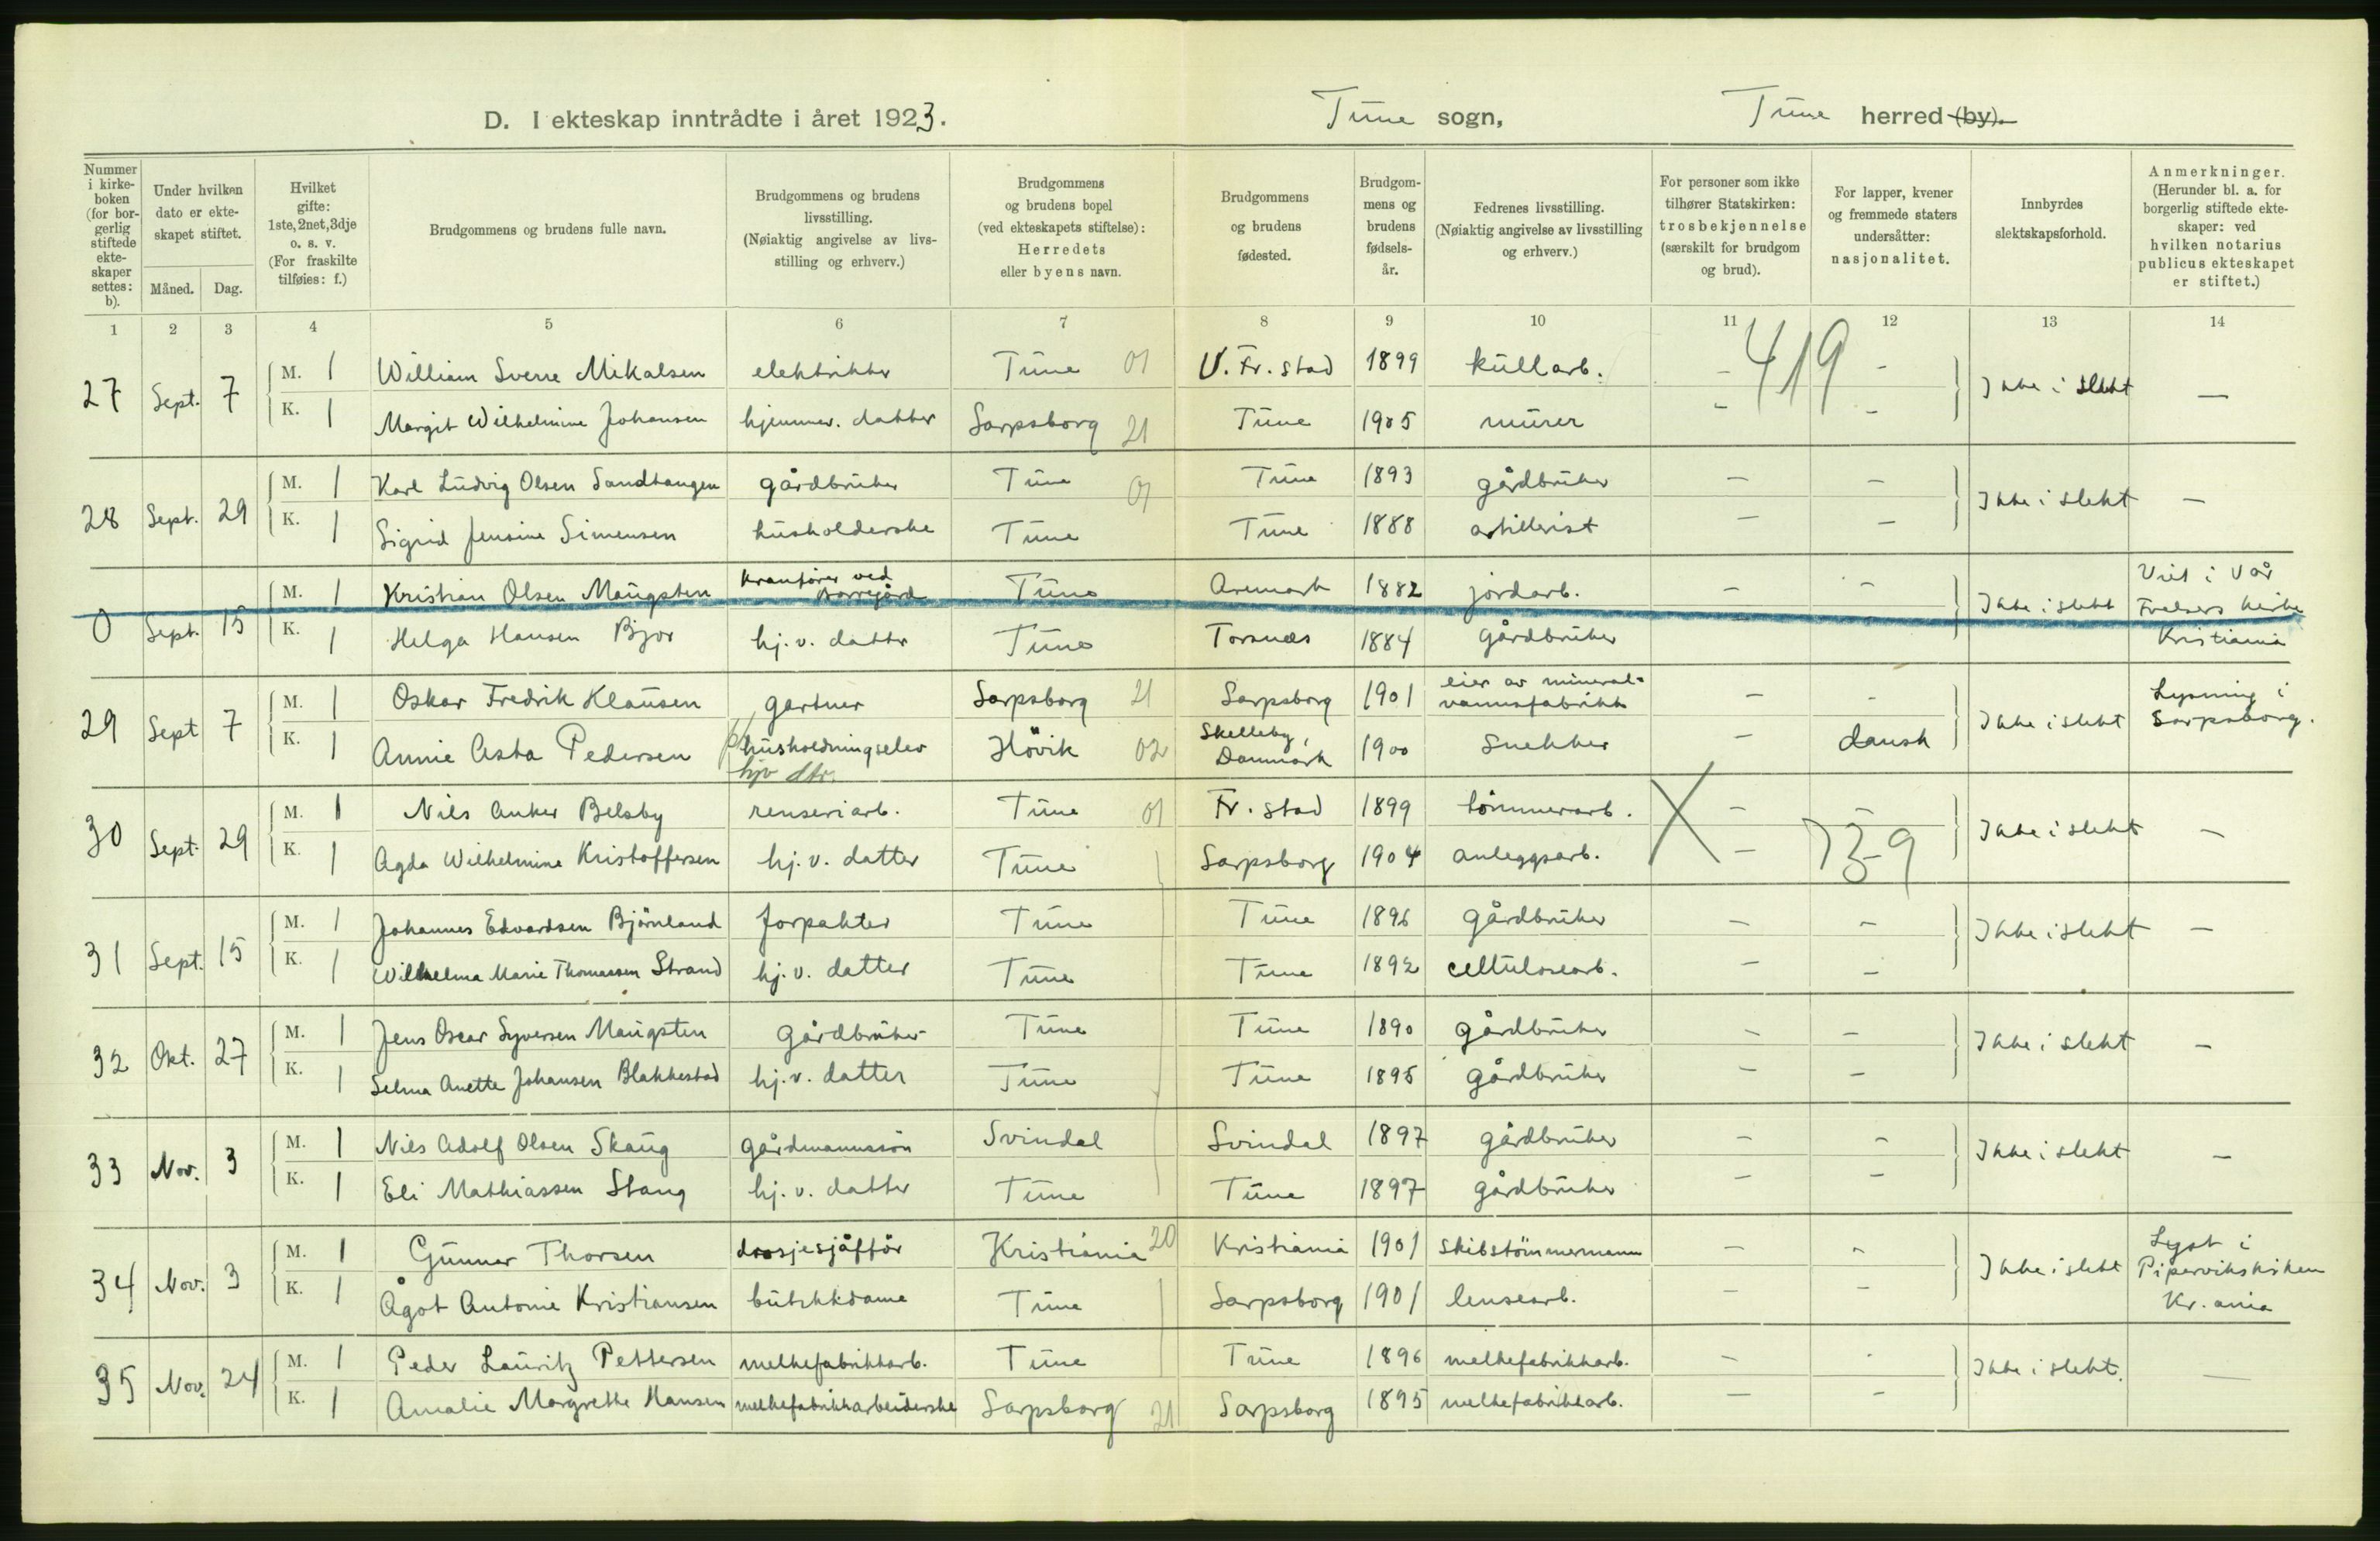 D. I ekteskap inntrådte i året 1923. Tune sogn, Tune herred (by).
Nummer i kirkeboken (for borgerlig stiftede ekteskaper settes: b).
Under hvilken dato er ekteskapet stiftet.
Måned. Dag.
Hvilket gifte: 1ste, 2net, 3dje o. s. v. (For fraskilte tilføies: f.)
Brudgommens og brudens fulle navn.
Brudgommens og brudens livsstilling. (Nøiaktig angivelse av livsstilling og erhverv.)
Brudgommens og brudens bopel (ved ekteskapets stiftelse): Herredets eller byens navn.
Brudgommens og brudens fødested.
Brudgommens og brudens fødselsår.
Fedrenes livsstilling. (Nøiaktig angivelse av livsstilling og erhverv.)
For personer som ikke tilhører Statskirken: trosbekjennelse (særskilt for brudgom og brud).
For lapper, kvener og fremmede staters undersåtter: nasjonalitet.
Innbyrdes slektskapsforhold.
Anmerkninger. (Herunder bl. a. for borgerlig stiftede ekteskaper: ved hvilken notarius publicus ekteskapet er stiftet.)
1 2 3 4 5 6 7 8 9 10 11 12 13 14
27 Sept. 7 M. 1 William Sverre Mikalsen elektriker Tune 01 V. Fr. stad 1899 kullarb. - 419 - Ikke i slekt —
K. 1 Margit Wilhelmine Johansen hjemmev. datter Sarpsborg 21 Tune 1905 murer - -
28 Sept. 29 M. 1 Karl Ludvig Olsen Sandhaugen gårdbruker Tune 01 Tune 1893 gårdbruker - - Ikke i slekt —
K. 1 Sigrid Jensine Simensen husholderske Tune Tune 1888 artillerist - -
0 Sept. 15 M. 1 Kristian Olsen Maugsten kranfører ved Borregård Tune Aremark 1882 jordarb. - - Ikke i slekt Viet i Vår Frelsers kirke Kristiania
K. 1 Helga Hansen Bjor hj. v. datter Tune Torsnes 1884 gårdbruker
29 Sept 7 M. 1 Oskar Fredrik Klausen gartner Sarpsborg 21 Sarpsborg 1901 eier av mineralvannsfabrikk - - Ikke i slekt Lysning i Sarpsborg.
K. 1 Annie Asta Pedersen husholdningselev hjv dtr. Høvik 02 Skelleby, Danmark 1900 snekker - dansk
30 Sept. 29 M. 1 Nils Anker Belsby renseriarb. Tune 01 Fr. stad 1899 tømmerarb. X - - Ikke i slekt —
K. 1 Agda Wilhelmine Kristoffersen hj. v. datter Tune Sarpsborg 1904 anleggsarb. -
31 Sept. 15 M. 1 Johannes Edvardsen Bjørnland forpakter Tune Tune 1896 gårdbruker - - Ikke i slekt —
K. 1 Wilhelma Marie Thomassen Strand hj. v. datter Tune Tune 1892 cellulosearb. - -
32 Okt. 27 M. 1 Jens Oscar Syversen Maugsten gårdbruker Tune Tune 1890 gårdbruker - - Ikke i slekt —
K. 1 Selma Anette Johansen Blakkestad hj. v. datter Tune Tune 1895 gårdbruker - -
33 Nov. 3 M. 1 Nils Adolf Olsen Skaug gårdmannssøn Svindal Svindal 1897 gårdbruker - - Ikke i slekt —
K. 1 Eli Mathiassen Stang hj. v. datter Tune Tune 1897 gårdbruker - -
34 Nov. 3 M. 1 Gunnar Thorsen drosjesjåffør Kristiania 20 Kristiania 1901 skibstømmermann - - Ikke i slekt Lyst i Pipervikskirken Kr. ania
K. 1 Ågot Antonie Kristiansen butikkdame Tune Sarpsborg 1901 lensearb. - -
35 Nov. 24 M. 1 Peder Lauritz Pettersen melkefabrikkarb. Tune Tune 1896 melkefabrikkarb. - - Ikke i slekt. —
K. 1 Amalie Margrethe Hansen melkefabrikkarbeiderske Sarpsborg 21 Sarpsborg 1895 melkefabrikkarb. - -